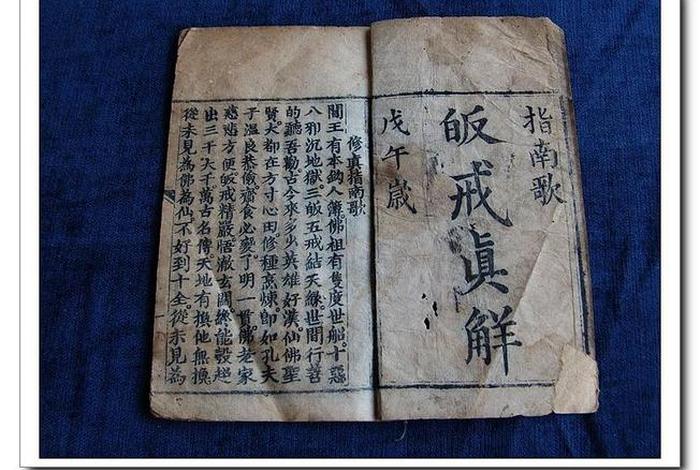 指南歌
皈戒眞解
戊午歲
修眞指南歌
閻王有本鈎人簿。佛祖有隻度世船。十惡
八邪沉地獄。三皈五戒結天緣。世間行善
的。聽吾勸。古今來多少英雄好漢。仙佛聖
賢。大都在方寸心田。修種烹煉。卽如孔夫
子。温良恭儉。齋食必變。了明一貫。佛老家
慈悲方便。皈戒精嚴。悟澈玄関。纔能彀超
出三千大千。萬古名傳。天地有換。他無換。
從未見為佛為仙。不好到十全。從未見為